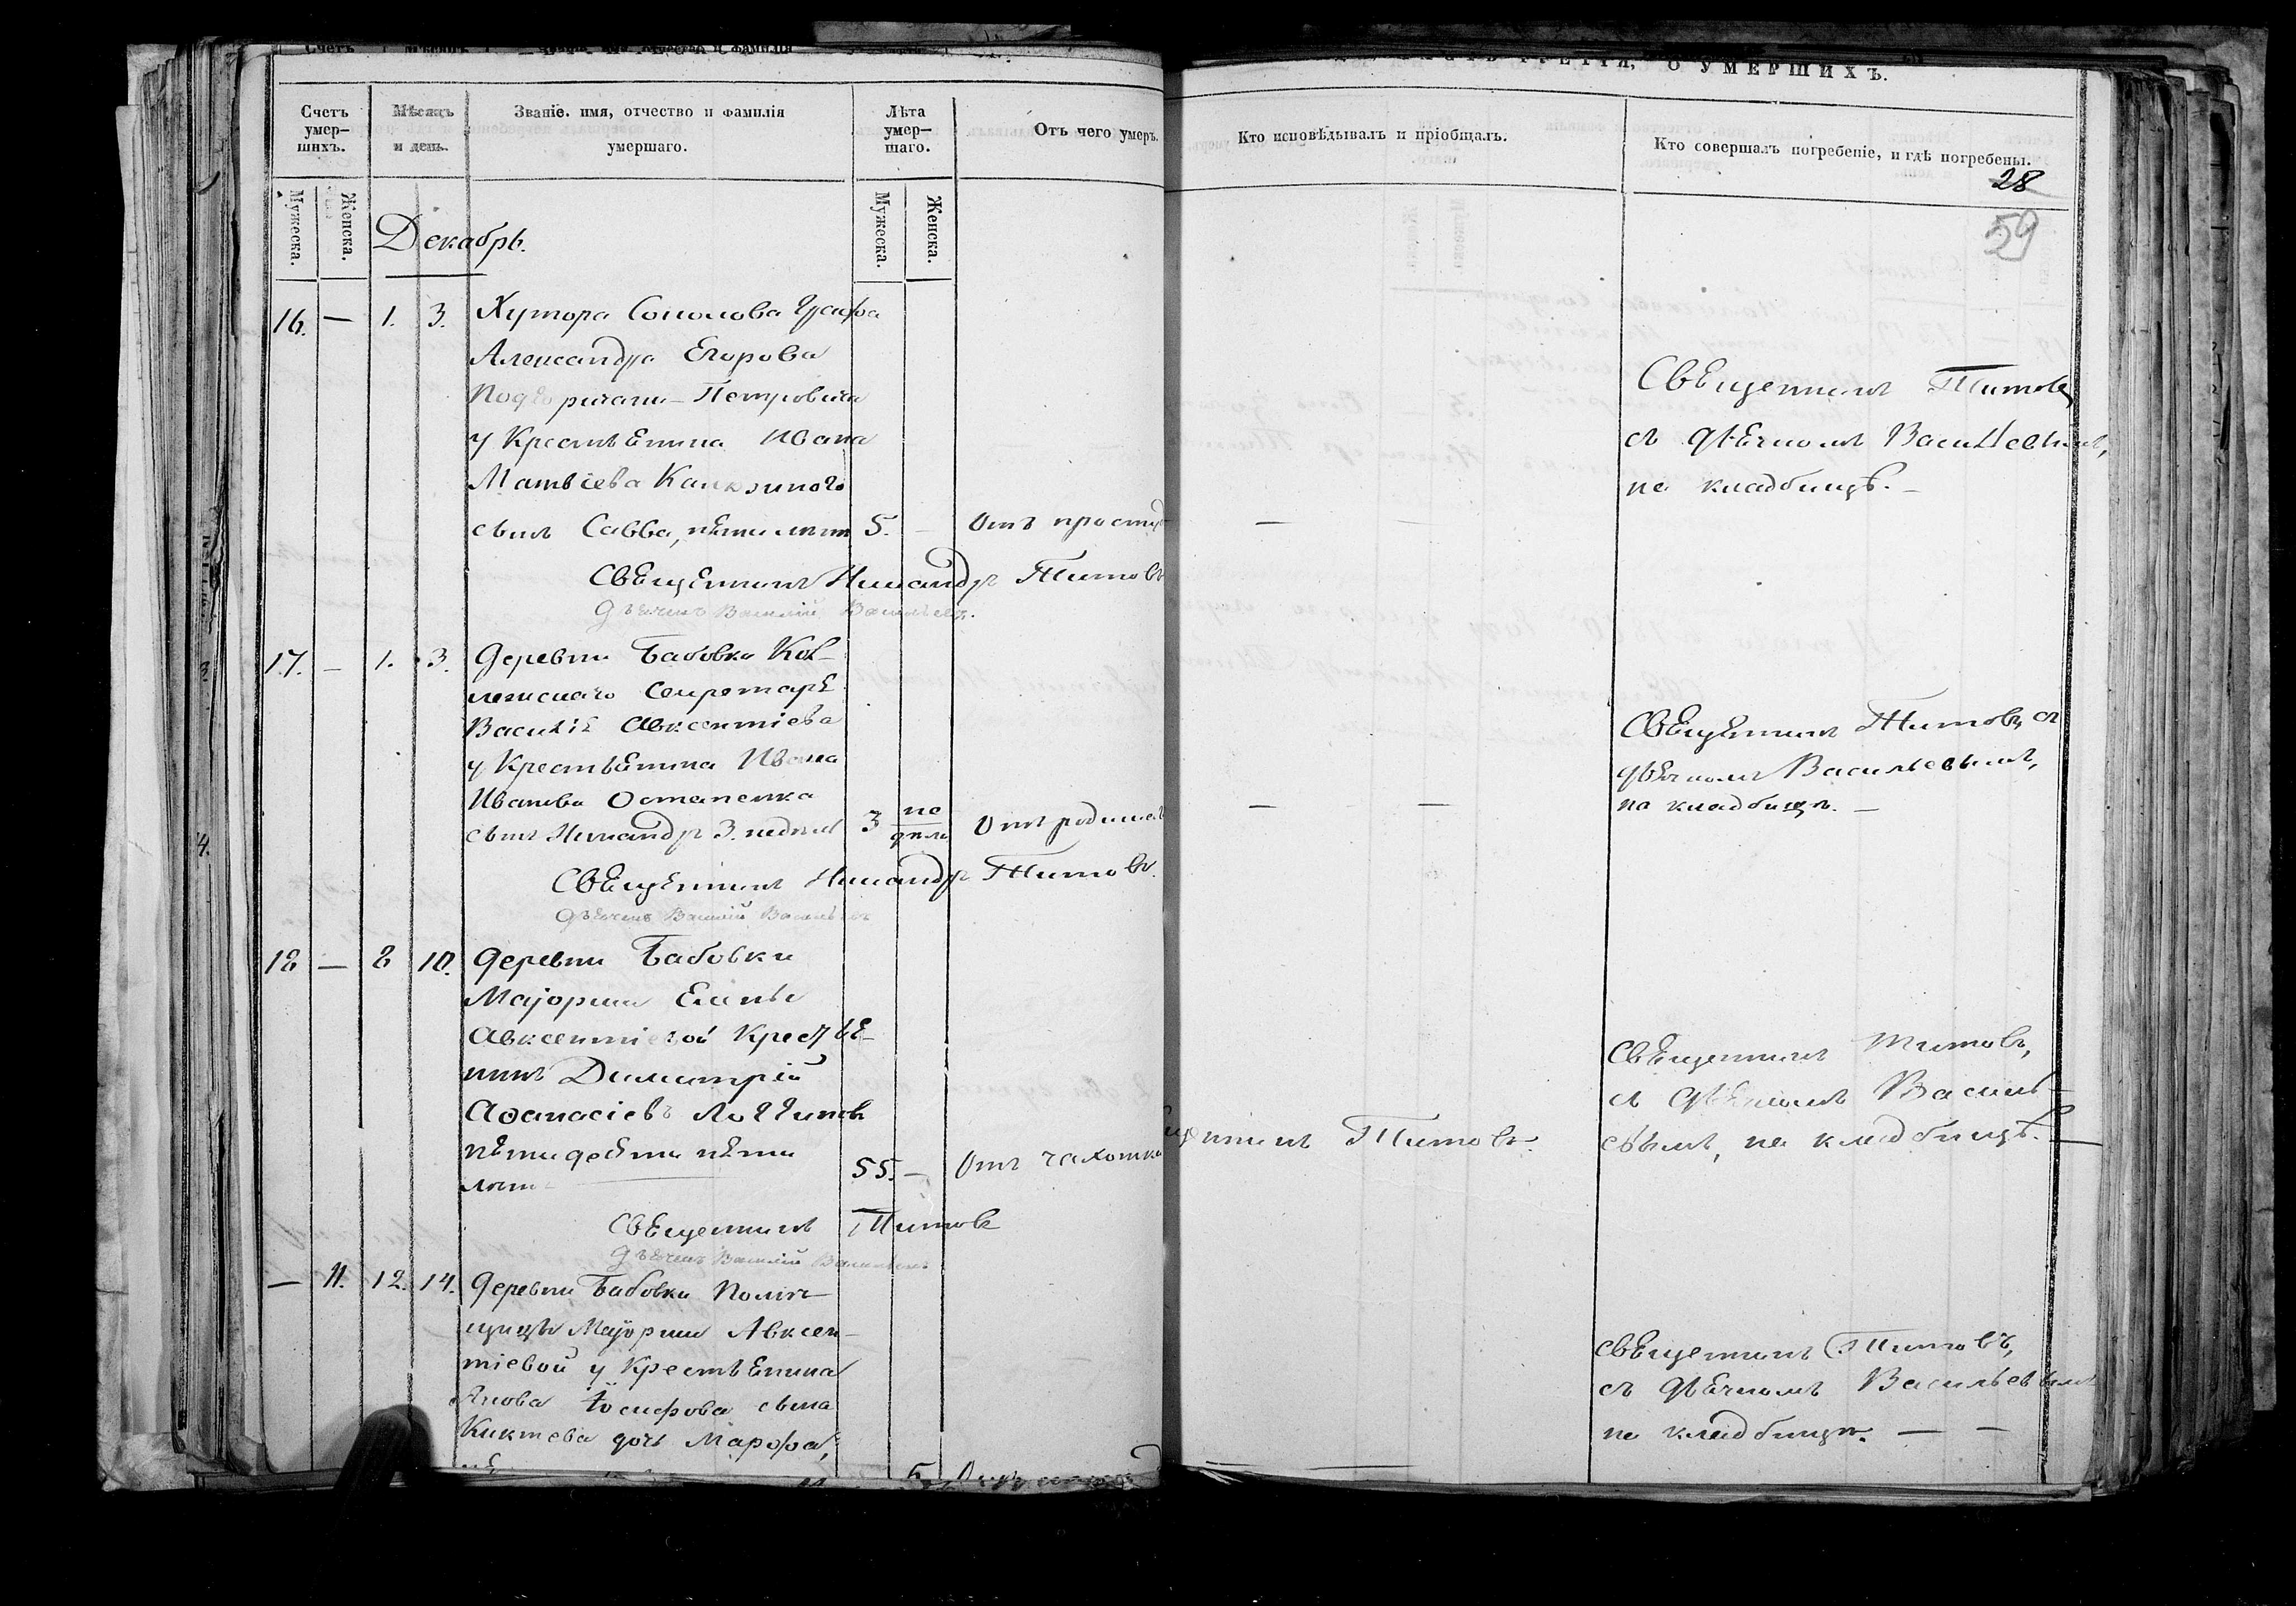 О УМЕРШИХЪ.
Счетъ умер–шихъ.
Мѣсяцъ и день.
Званіе, имя, отчество и фамилія умершаго.
Лѣта умер–шаго.
Отъ чего умеръ.
Кто исповѣдывалъ и пріобщалъ.
Кто совершалъ погребеніе, и гдѣ погребены.
28
59
Мужеска.
Женска.
Мужеска.
Женска.
Декабрь.
16. — 1. 3. Хутора Соколова Графа
Александра Егорова
Подгоричани-Петровича
у Крестьянина Ивана
Матвѣева
сынъ Савва, пяти лѣтъ 5. — Отъ простуд
— —
Священникъ Титовъ
съ дьячкомъ Васильевымъ,
на кладбищѣ. —
Священникъ Никандръ Титовъ
Дьячекъ Василій Васильевъ.
17. — 1. 3. деревни Бабовки Кол–
лежскаго Секретаря
Василія Авксентіева
у Крестьянина Ивана
Иванова Остапенка
сынъ Никандръ 3. недѣль 3 не
дѣли Отъ родимца
— —
Священникъ Титовъ съ
дьячкомъ Васильевымъ,
на кладбищѣ. —
Священникъ Никандръ Титовъ.
Дьячекъ Василій Васильевъ
18 — 8 10. деревни Бабовки
Маіорши Елены
Авксентіевой Крестья–
нинъ Димитрій
Аѳанасіевъ Логгиновъ
пятидесяти пяти
лѣтъ 55. — Отъ чахотки
щенникъ Титовъ.
Священникъ Титовъ,
съ дьячкомъ Василь–
евымъ, на кладбищѣ. —
Священникъ Титовъ
Дьячекъ Василій Васильевъ
— 11. 12. 14. деревни Бабовки Помѣ–
щицы Маіорши Авксен–
тіевой у Крестьянина
Якова Іосифова сына
Киктева дочь Марѳа,
5
Священникъ Титовъ,
съ дьячкомъ Васильевымъ
на кладбищѣ. — —
4.